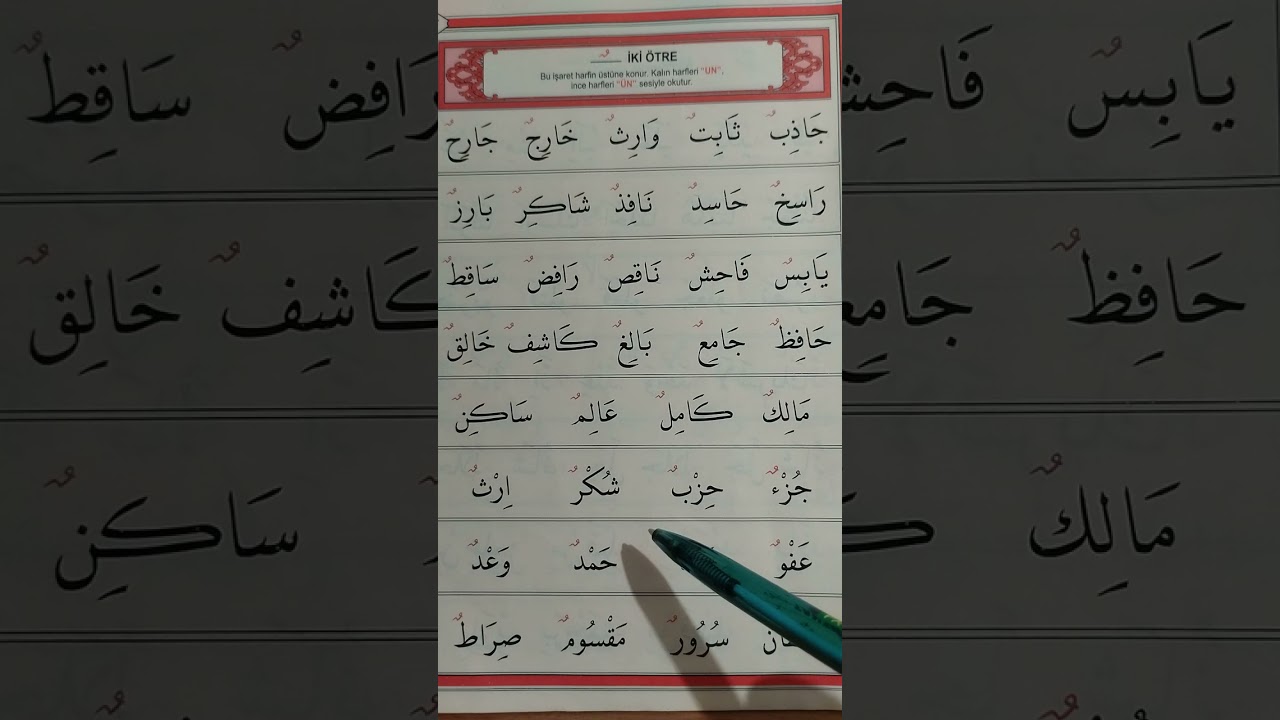 İKİ ÖTRE
Bu işaret harfin üstüne konur. Kalın harfleri "UN",
ince harfleri "ÜN" sesiyle okutur.
جَاذِبٌ ثَابِتٌ وَارِثٌ خَارِجٌ جَارِحٌ
رَاسِخٌ حَاسِدٌ نَافِذٌ شَاكِرٌ بَارِزٌ
يَابِسٌ فَاحِشٌ نَاقِصٌ رَافِضٌ سَاقِطٌ
حَافِظٌ جَامِعٌ بَالِغٌ كَاشِفٌ خَالِقٌ
مَالِكٌ كَامِلٌ عَالِمٌ سَاكِنٌ
جُزْءٌ حِزْبٌ شُكْرٌ اِرْثٌ
عَفْوٌ حَمْدٌ وَعْدٌ
سُرُورٌ مَقْسُومٌ صِرَاطٌ